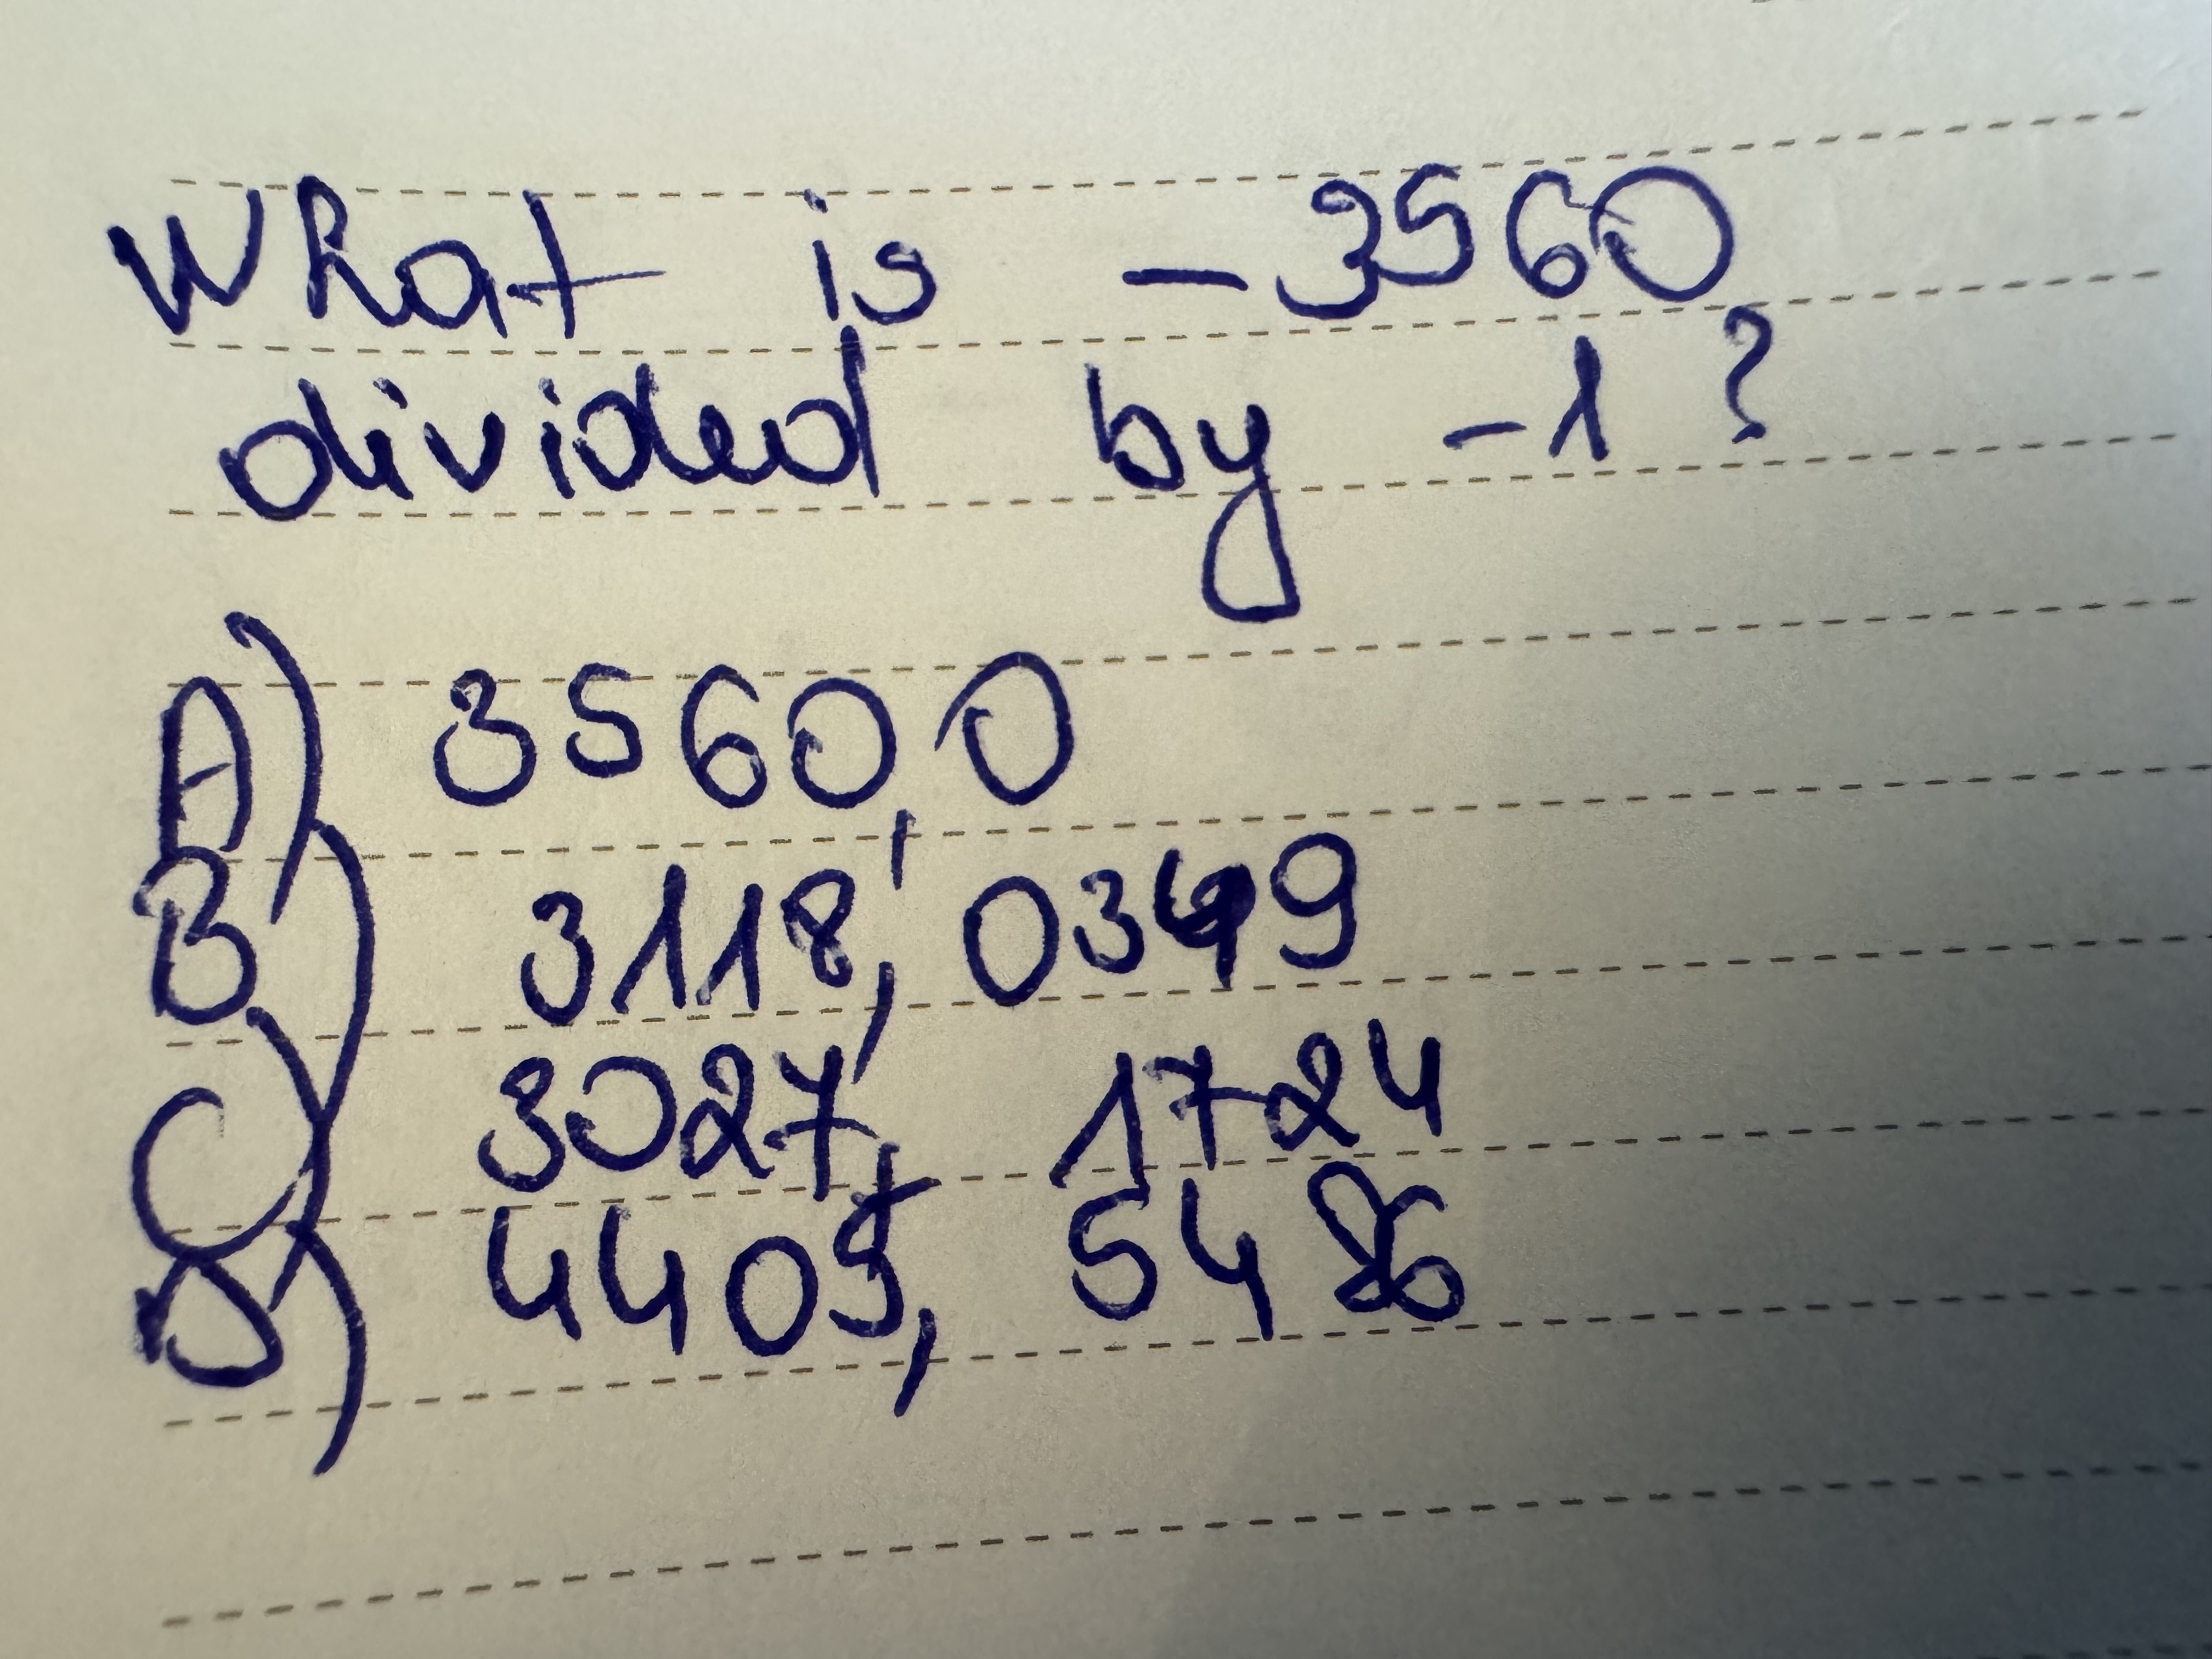 What is -3560
divided by -1?
A) 3560,0
B) 3118,0349
C) 3027,1724
D) 4405,5486